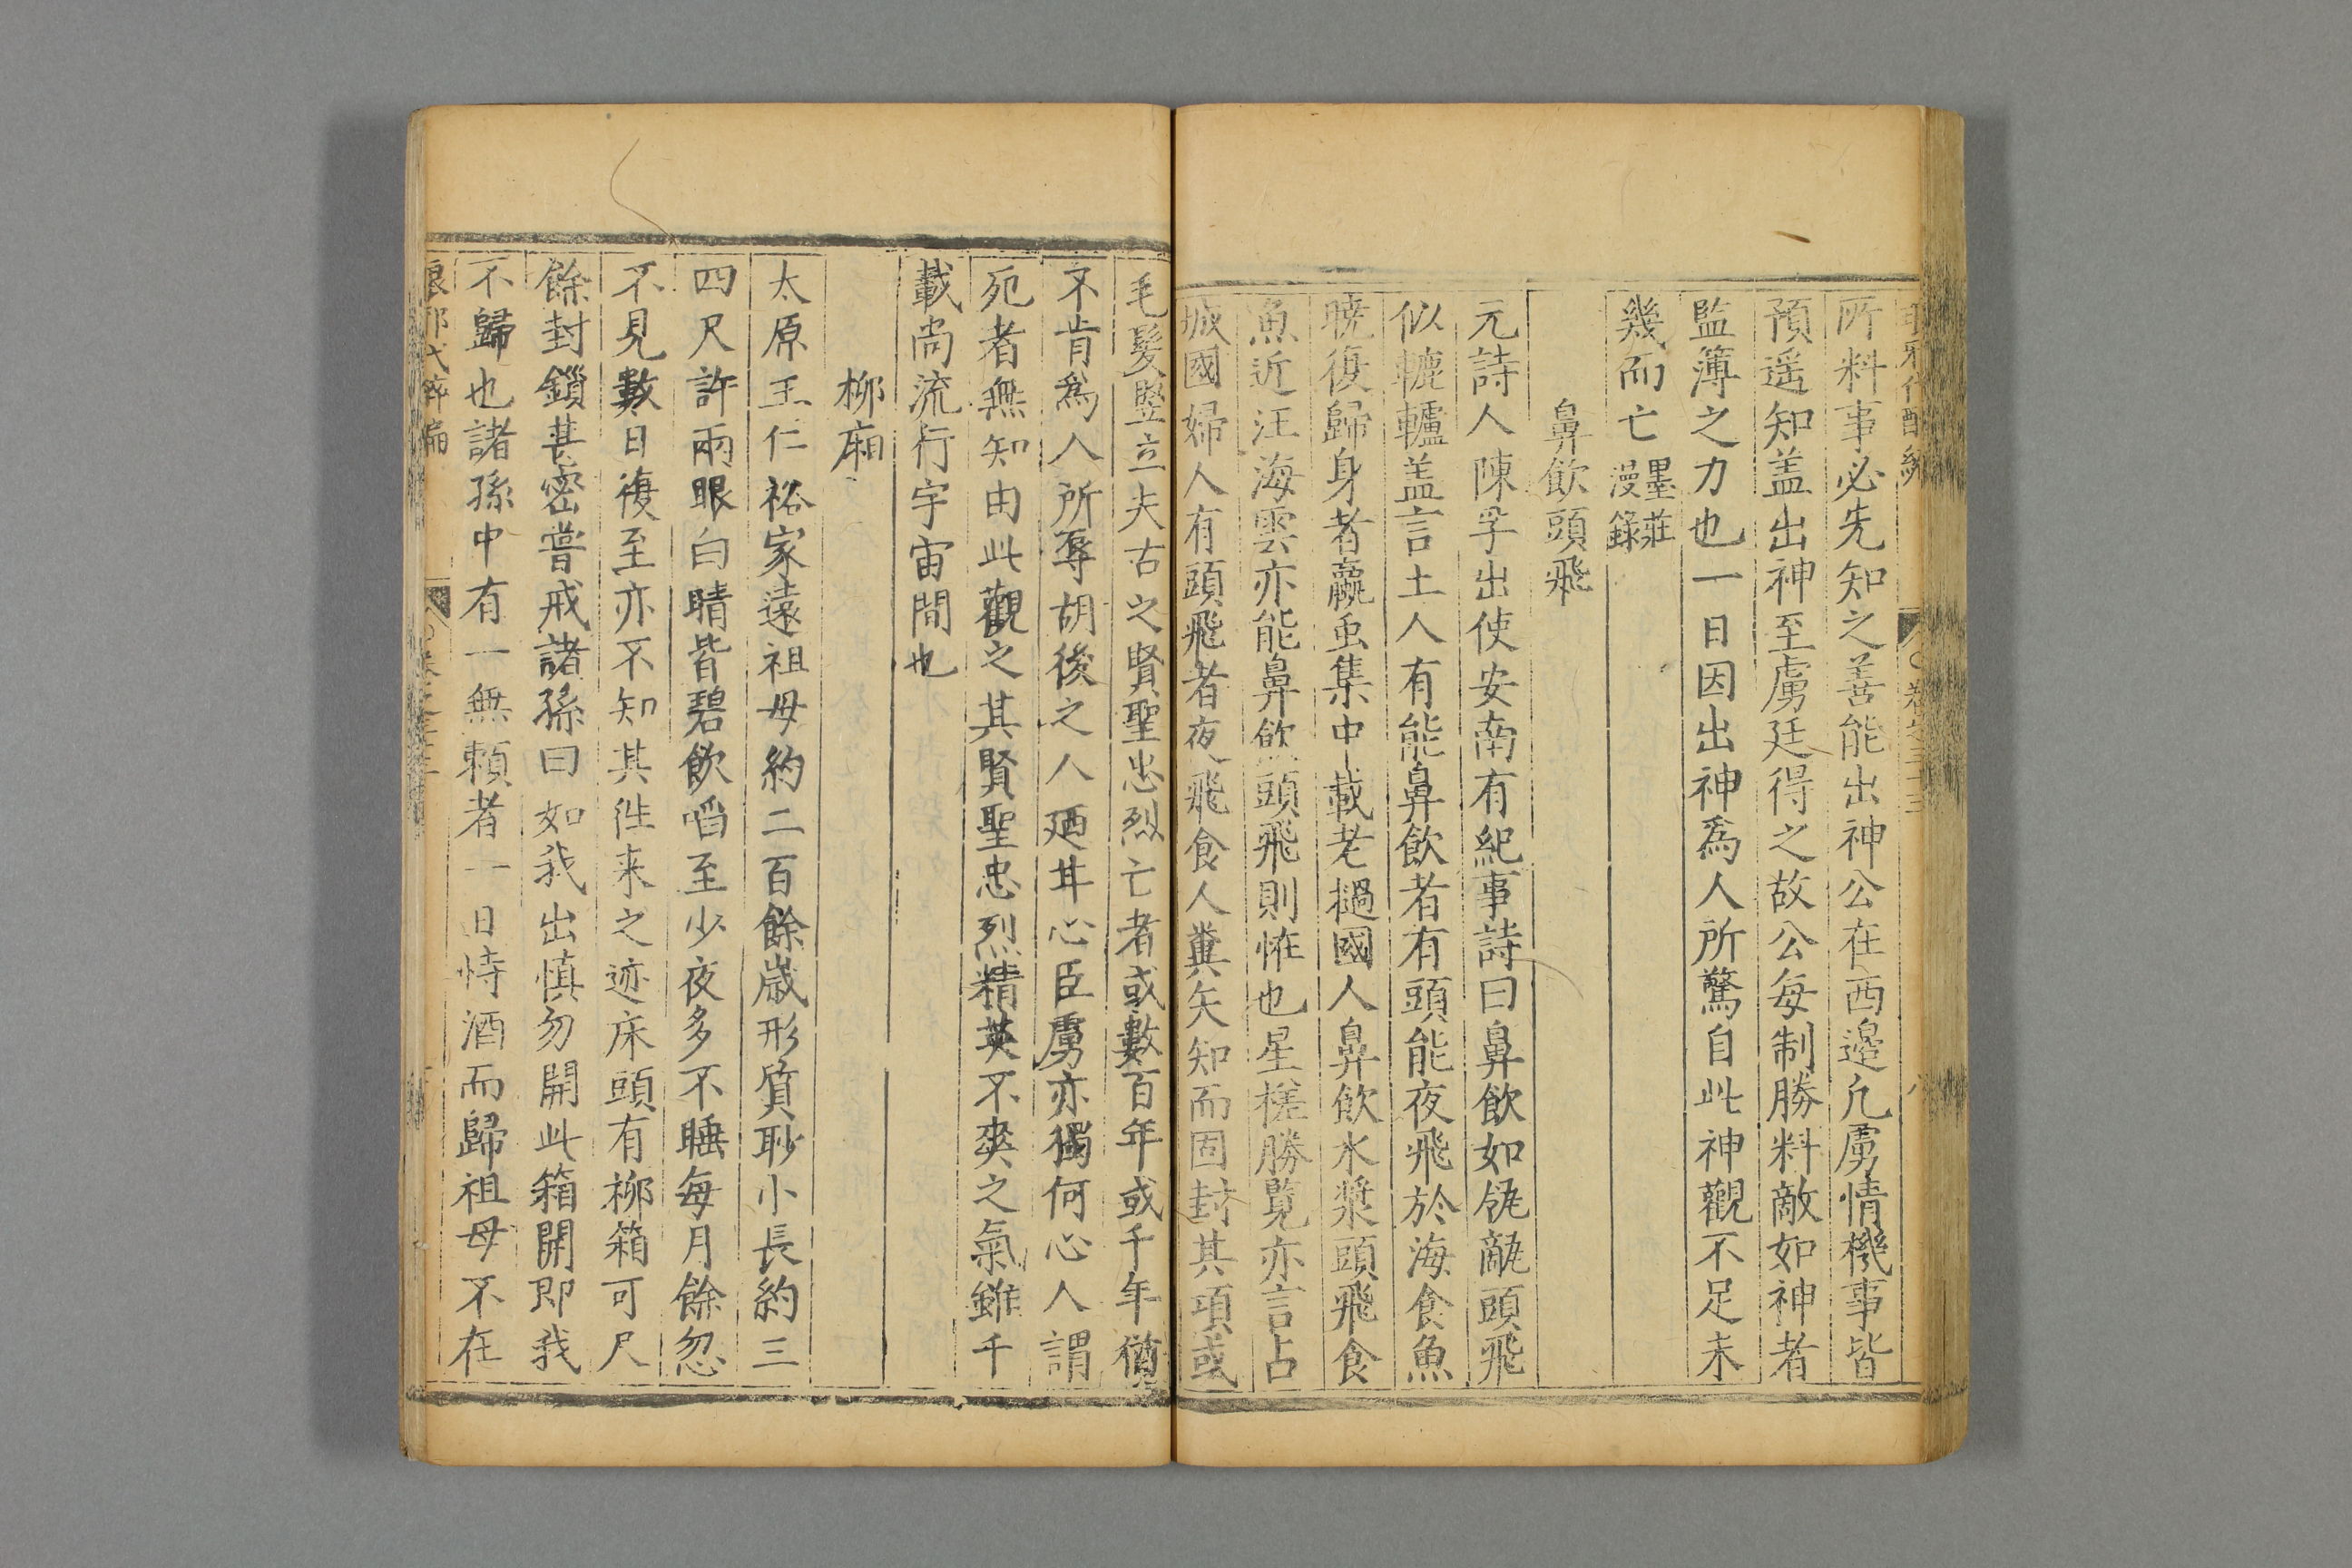 所料事必先知之善能出神公在西邉凢虜情機事皆
預遥知盖出神至虜廷得之故公每制勝料敵如神者
監簿之力也一日因出神為人所驚自此神觀不足未
幾而亡墨莊漫錄
鼻飲頭飛
元詩人陳孚出使安南有紀事詩曰鼻飲如瓴甋頭飛
似轆轤盖言土人有能鼻飲者有頭能夜飛於海食魚
曉復歸身者蠃虫集中載老撾國人鼻飲水漿頭飛食
魚近汪海雲亦能鼻飲頭飛則恠也星槎勝覽亦言占
城國婦人有頭飛者夜飛食人糞矢知而固封其項或
毛髮竪立夫古之賢聖忠烈亡者或數百年或千年猶
不肯為人所辱胡後之人廼甘心臣虜亦獨何心人謂
死者無知由此觀之其賢聖忠烈精英不爽之氣雖千
載尚流行宇宙間也
柳廂
太原王仁裕家遠祖母約二百餘歲形質眇小長約三
四尺許兩眼白睛皆碧飲啗至少夜多不睡每月餘忽
不見數日復至亦不知其徃来之迹床頭有柳箱可尺
餘封鎻甚密嘗戒諸孫曰如我出慎勿開此箱開即我
不歸也諸孫中有一無賴者一日恃酒而歸祖母不在